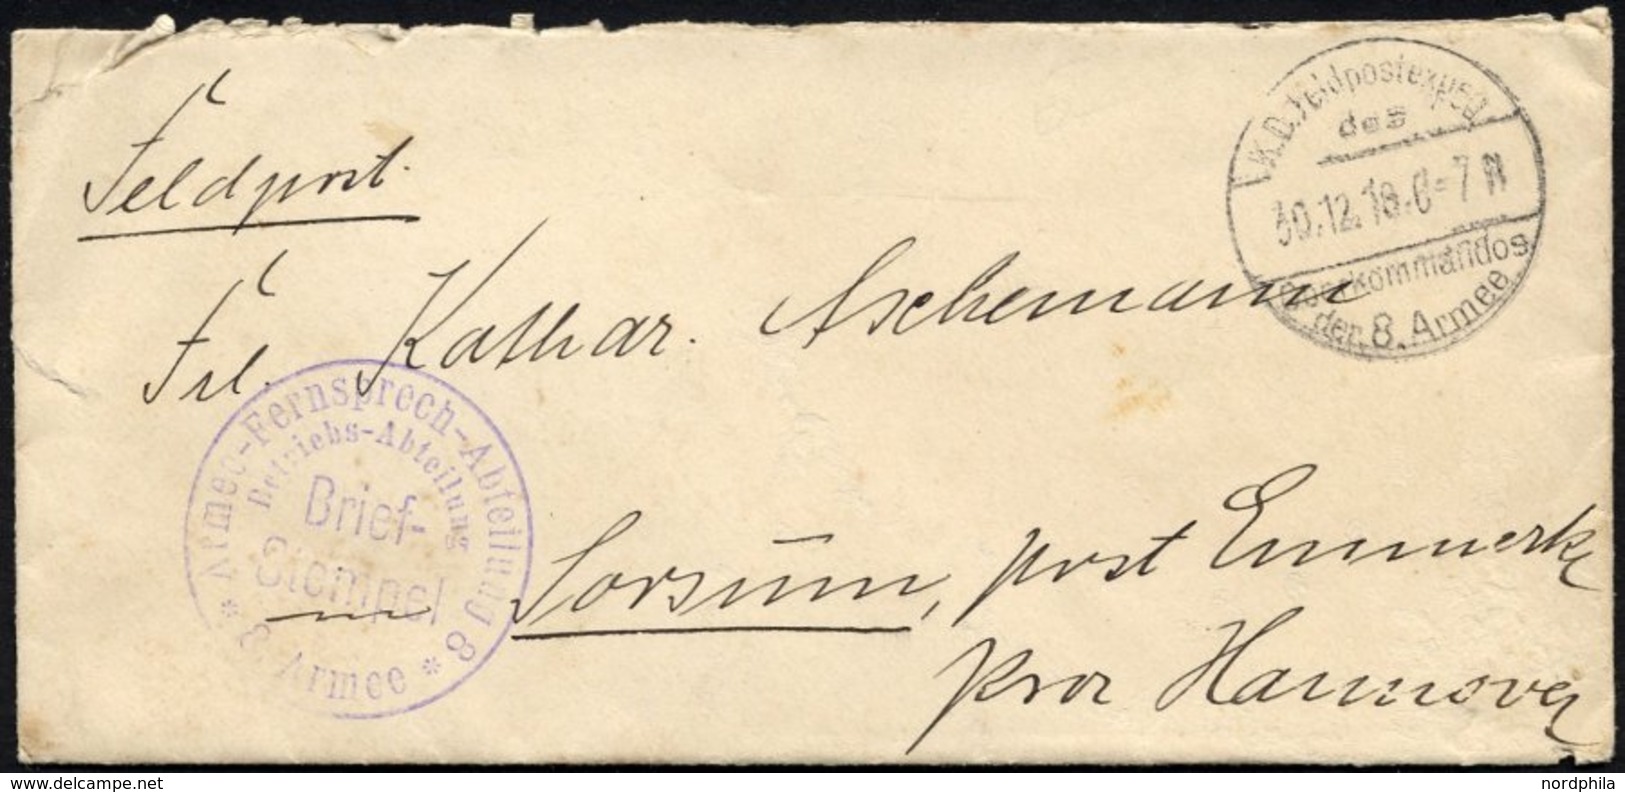 Feldpost.
K.D. Feldpostexped.
des
30.12.18. 6-7 N
Oberkommandos
der 8. Armee
Frl. Kathar. Aschemann
in Sorsum, post Emmerke
prov Hannover
Armee-Fernsprech-Abteilung 8
Betriebs-Abteilung
Brief-
Stempel
* 8. Armee *
www.delcampe.net
nordphila